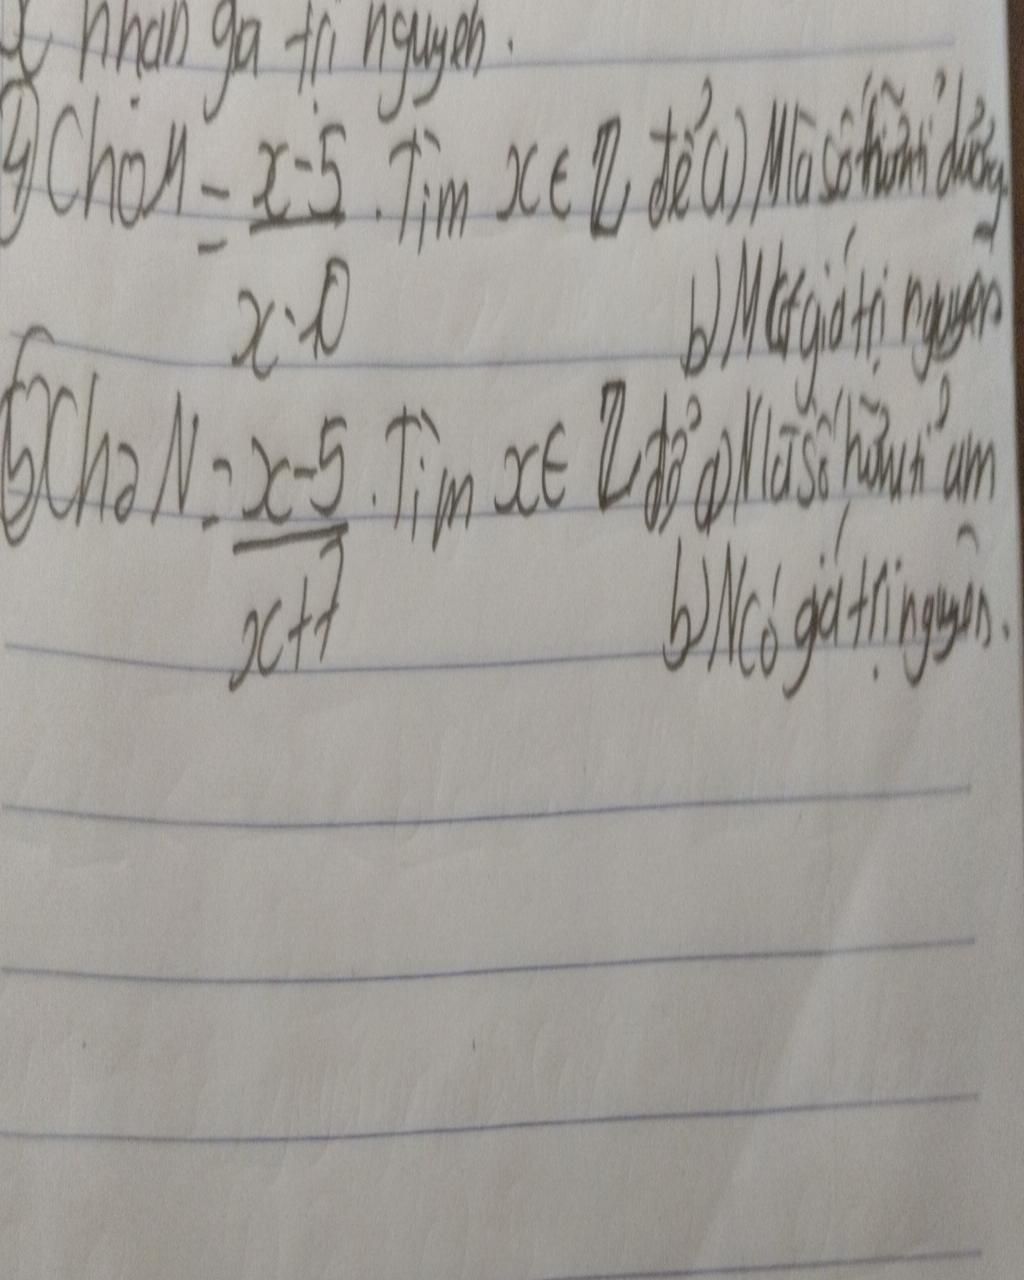 nhận gá trị nguyên.
4) Cho M = x-5 . Tìm x ∈ Z để a) M là số hữu tỉ dương
x-10 b) M có giá trị nguyên
5) Cho N = x-5 . Tìm x ∈ Z để a) N là số hữu tỉ âm
x+7 b) N có giá trị nguyên.